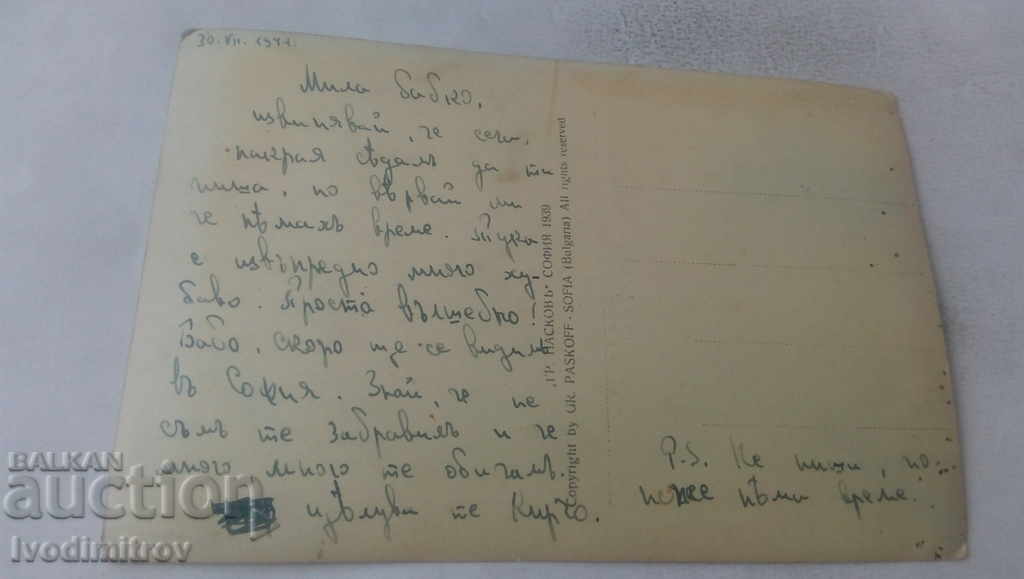 30. VII. 1941.
Мила бабко,
извинявай, че сега,
сѣдамъ да ти
пиша, но вѣрвай ми
че нѣмахъ време. Тука
е извънредно много ху-
баво. Проста вълшебно!
Бабо, скоро ще се видимъ
въ София. Знай, че не
съмъ те забравилъ и че
много, много те обичамъ.
цѣлуви те Кирчо.
P.S. Не пиши, по-
неже нѣма време.
„ГР. ПАСКОВЪ" СОФИЯ 1939
Copyright by GR. PASKOFF - SOFIA (Bulgaria) All rights reserved
BALKAN
auction
Ivodimitrov